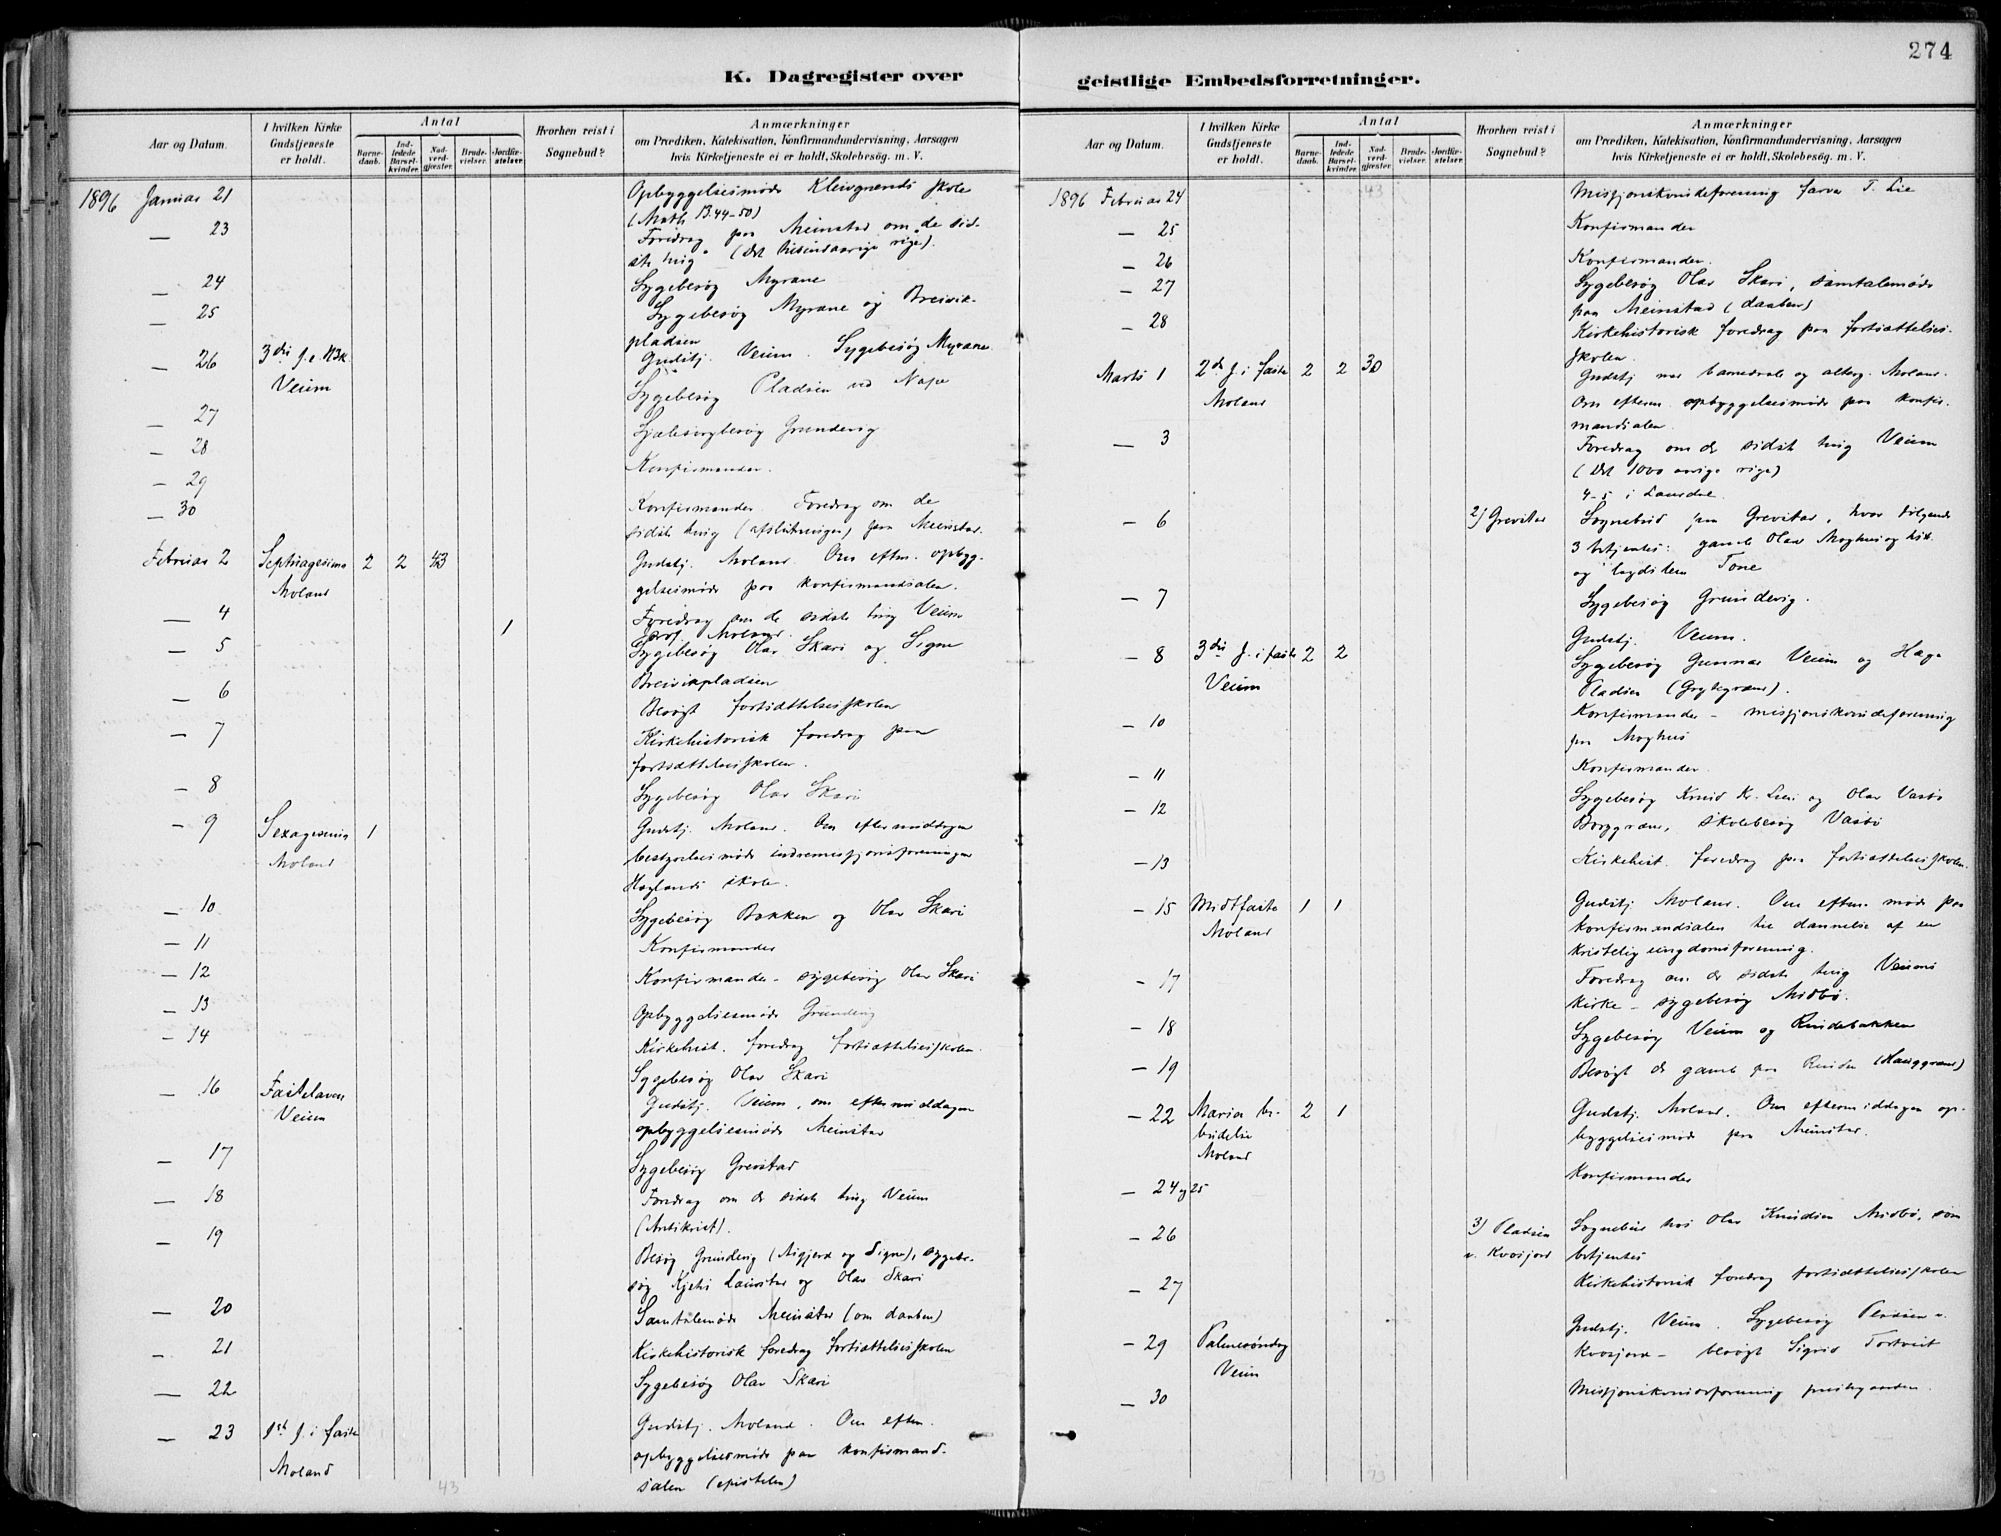 274
K. Dagregister over
geistlige Embedsforretninger.
Aar og Datum.
I hvilken Kirke Gudstjeneste er holdt.
Antal
Barne-daab.
Ind-ledede Barsel-kvinder.
Nad-verd-gjæster.
Brude-vielser.
Jordfæ-stelser.
Hvorhen reist i Sognebud?
Anmærkninger
om Prædiken, Katekisation, Konfirmandundervisning, Aarsagen
hvis Kirketjeneste ei er holdt, Skolebesøg. m. V.
1896 Januar 21 Opbyggelsesmøde Kleivgrænds skole
(Math 13.44-50)
— 23 Foredrag paa Meinstad om "de sid-
ste ting" (det tusindaarige rige).
— 24 Sygebesøg Myrane
— 25 Sygebesøg Myrane og Breivik-
pladsen
— 26 3die s. e. H3K Veum Gudstj. Veum. Sygebesøg Myrane
— 27 Sygebesøg Pladsen ved Nape
— 28 Sjælesorgbesøg Grundevig
— 29 Konfirmander.
— 30 Konfirmander. Foredrag om de
sidste ting (afslutningen) paa Meinstad.
Februar 2 Septuagesima Moland 2 2 43 Gudstj. Moland. Om eftm. opbyg-
gelsesmøde paa konfirmandsalen.
— 4 Foredrag om de sidste ting Veum
— 5 1 Jordf. Moland.
Sygebesøg Olav Skari og Signe
Breivikpladsen
— 6 Besøgt fortsættelsesskolen
— 7 Kirkehistorisk foredrag paa
fortsættelsesskolen.
— 8 Sygebesøg Olav Skari
— 9 Sexagesima Moland 1 Gudstj. Moland. Om eftermiddagen
bestyrelsesmøde indremissjonsforeningen
Høglands skole.
— 10 Sygebesøg Bakken og Olav Skari
— 11 Konfirmander
— 12 Konfirmander - sygebesøg Olav Skari
— 13 Opbyggelsesmøde Grundevig
— 14 Kirkehist. foredrag fortsættelsesskolen.
Sygebesøg Olav Skari
— 16 Fastelaven Veum Gudstj. Veum, om eftermiddagen
opbyggelsesmøde Meinstad
— 17 Sygebesøg Grevstad
— 18 Foredrag om de sidste ting Veum
(Antikrist).
— 19 Besøg Grundevig (Aigjerd og Signe), sygebe-
søg Kjetil Laurstad og Olav Skari
— 20 Samtalemøde Meinstad (om daaben)
— 21 Kirkehistorisk foredrag fortsættelsesskolen
— 22 Sygebesøg Olav Skari
— 23 1ste s. i faste Moland Gudstj. Moland. Om eftm.
opbyggelsesmøde paa konfirmand-
salen (epistelen)
43
Aar og Datum.
I hvilken Kirke Gudstjeneste er holdt.
Antal
Barne-daab.
Ind-ledede Barsel-kvinder.
Nad-verd-gjæster.
Brude-vielser.
Jordfæ-stelser.
Hvorhen reist i Sognebud?
Anmærkninger
om Prædiken, Katekisation, Konfirmandundervisning, Aarsagen
hvis Kirketjeneste ei er holdt, Skolebesøg. m. V.
43
1896 Februar 24 Missjonskvindeforening T. Lie
— 25 Konfirmander
— 26 Konfirmander.
— 27 Sygebesøg Olav Skari, samtalemøde
paa Meinstad (daaben)
— 28 Kirkehistorisk foredrag paa fortsættelses-
skolen.
Marts 1 2den s. i faste Moland 2 2 30 Gudstj med barnedaab og alterg. Moland.
Om efterm opbyggelsesmøde paa konfir-
mandsalen
— 3 Foredrag om de sidste ting Veum
(det 1000 aarige rige)
4-5 i Laurdal.
— 6 2) Grevstad Sognebud paa Grevstad, hvor følgende
3 betjentes: gamle Olav Moghus og
og Tone
— 7 Sygebesøg Grundevig.
— 8 3die s. i faste Veum 2 2 Gudstj. Veum.
Sygebesøg Gunnar Veum og
Pladsen
— 10 Konfirmander - missjonskvindeforening
paa Moghus
— 11 Konfirmander.
— 12 Sygebesøg Knud Kr. og Olav Vasbø
skolebesøg Vasbø
— 13 Kirkehist. foredrag paa fortsættelsesskolen.
— 15 Midtfaste Moland 1 1 Gudstj Moland. Om eftm. møde paa
konfirmandsalen til dannelse af en
kristelig ungdomsforening.
— 17 Foredrag om de sidste ting Veums
kirke - sygebesøg Midbø.
— 18 Sygebesøg Veum og Rindebakken
— 19 Besøgt de gamle paa Rinden (Hauggrænd)
— 22 Maria be-budelse Moland 2 1 Gudstj. Moland. Om eftermiddagen op-
byggelsesmøde paa Meinstad.
— 24 og 25 Konfirmander
— 26 3) Pladsen u. Kvosjord Sognebud hos Olav Knudsen Midbø, som
betjentes
— 27 Kirkehistorisk foredrag fortsættelsesskolen
— 29 Palmesøndag Veum Gudstj. Veum. Sygebesøg Pladsen u.
Kvosjord - besøgt Sigrid Tortveit
— 30 Missjonskvindeforening prestegaarden.
73